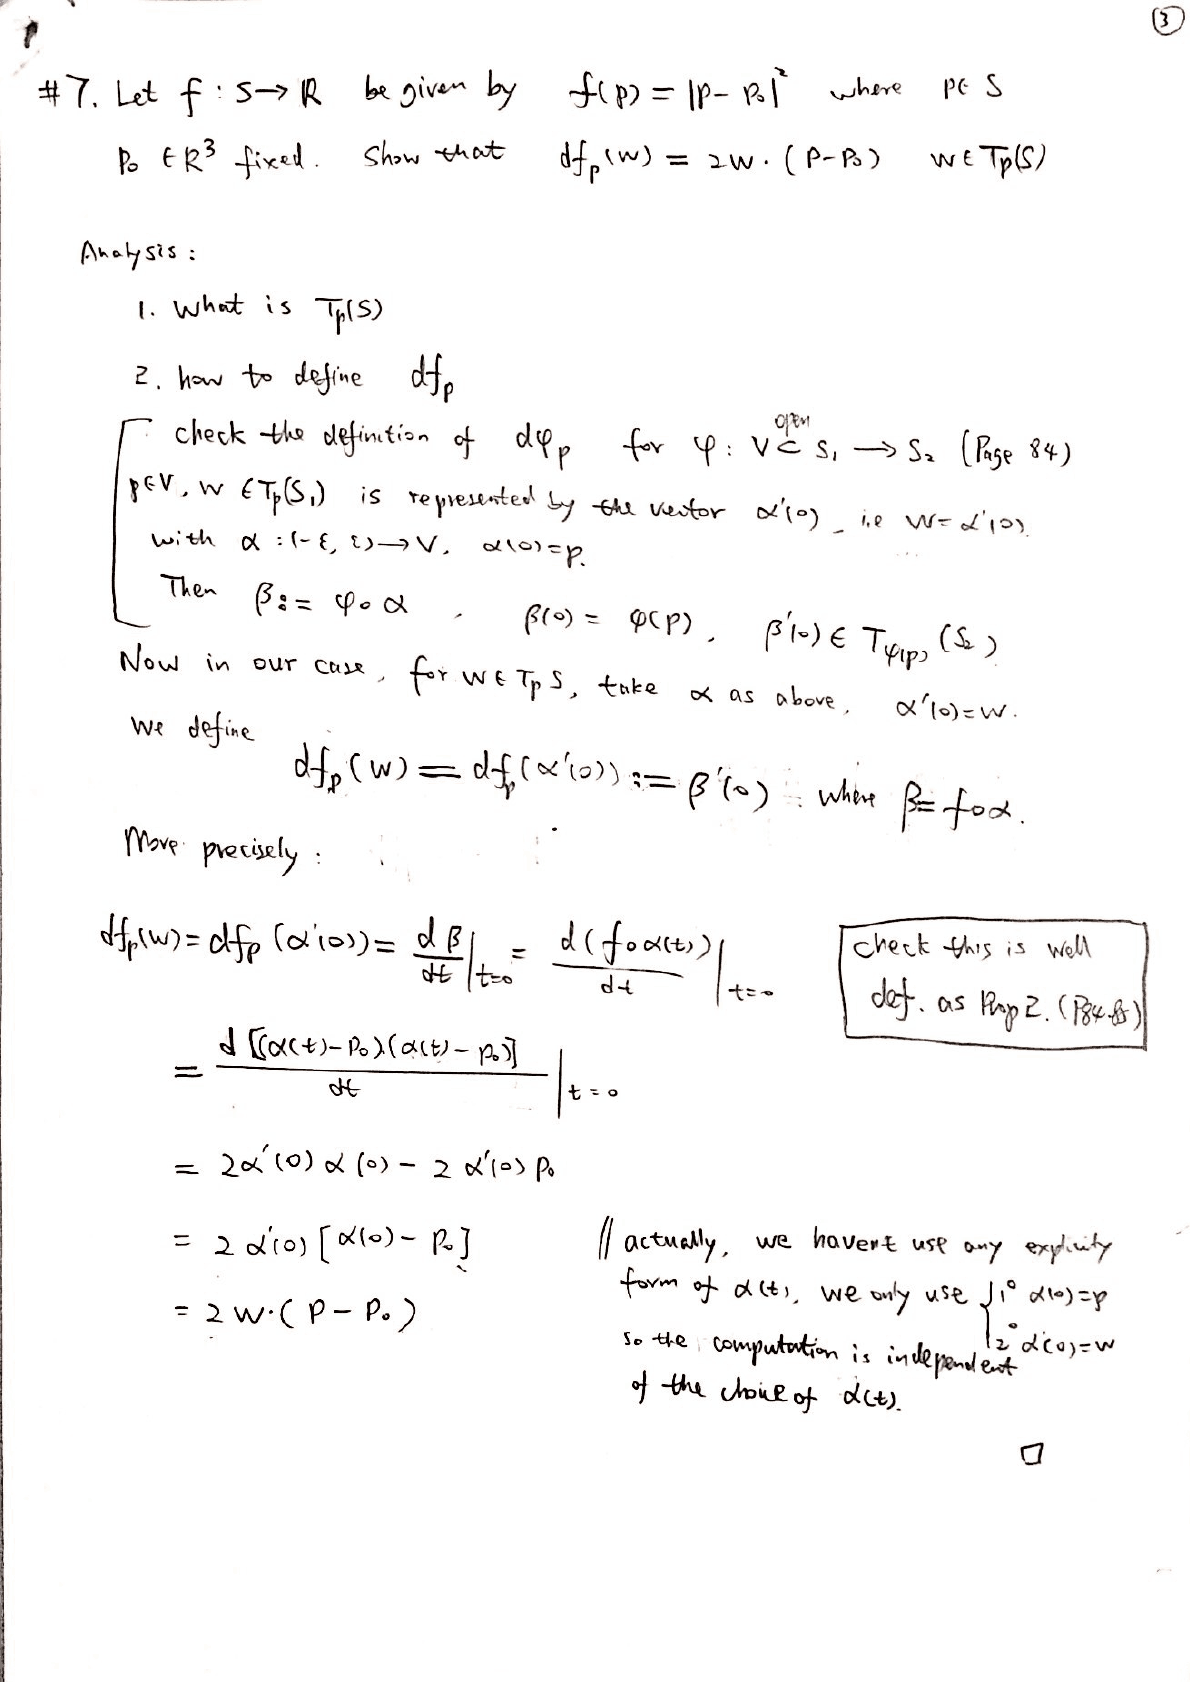 ③
#7. Let f : S → R be given by f(p) = |p - p₀|² where p ∈ S
p₀ ∈ R³ fixed. Show that df_p(w) = 2w · (p - p₀) w ∈ Tp(S)
Analysis :
1. What is Tp(S)
2. how to define df_p
check the definition of dφ_p for φ : V ⊂ S₁ → S₂ (Page 84)
open
p∈V, w ∈ Tp(S₁) is represented by the vector α'(0), i.e w = α'(0).
with α : (-ε, ε) → V, α(0) = p.
Then β := φ∘α , β(0) = φ(p), β'(0) ∈ T_φ(p) (S₂)
Now in our case, for w ∈ Tp S, take α as above, α'(0) = w.
we define
df_p(w) = df_p(α'(0)) := β'(0) where β = f∘α.
More precisely :
df_p(w) = df_p (α'(0)) = dβ/dt |t=0 = d(f∘α(t))/dt |t=0
check this is well
def. as Prop 2. (P84-85)
= d[(α(t) - p₀)·(α(t) - p₀)]/dt |t=0
= 2α'(0) α(0) - 2 α'(0) p₀
= 2 α'(0) [α(0) - p₀]
= 2 w·(p - p₀)
// actually, we havent use any explicity
form of α(t), we only use { 1° α(0)=p
2° α'(0)=w
so the computation is independent
of the choice of α(t).
□